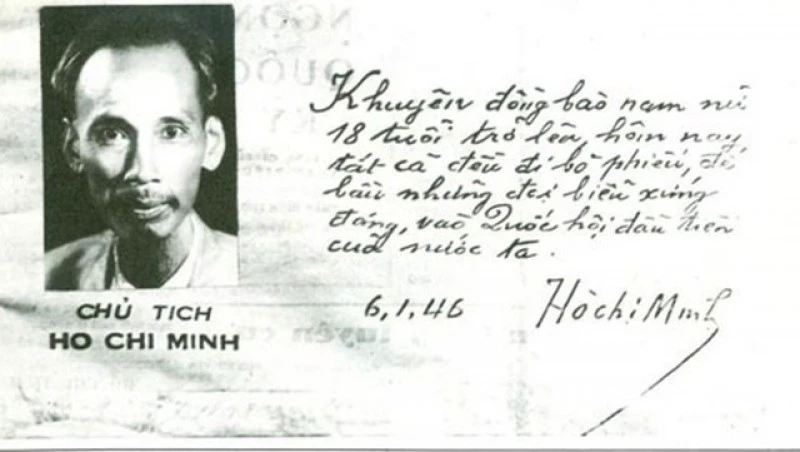 Khuyên đồng bào nam nữ
18 tuổi trở lên, hôm nay,
tất cả đều đi bỏ phiếu, để
bầu những đại biểu xứng
đáng, vào Quốc hội đầu tiên
của nước ta.
6, 1, 46
Hồ chí Minh
CHỦ TỊCH
HO CHI MINH